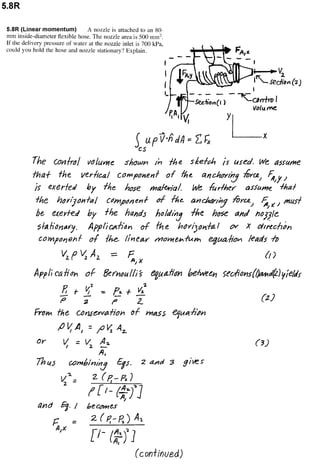 5.8R
5.8R (Linear momentum) A nozzle is attached to an 80-
mm inside-diameter flexible hose. The nozzle area is 500 mm².
If the delivery pressure of water at the nozzle inlet is 700 kPa,
could you hold the hose and nozzle stationary? Explain.
F_A,x
F_A,y
V₂
section (2)
section (1)
control
volume
P₁A₁
V₁
y
x
∫_cs u ρ V⃗·n̂ dA = ΣF_x
The control volume shown in the sketch is used. We assume
that the vertical component of the anchoring force, F_A,y,
is exerted by the hose material. We further assume that
the horizontal component of the anchoring force, F_A,x, must
be exerted by the hands holding the hose and nozzle
stationary. Application of the horizontal or x direction
component of the linear momentum equation leads to
V₂ρV₂A₂ = F_A,x (1)
Application of Bernoulli's equation between sections (1) and (2) yields
P₁/ρ + V₁²/2 = P₂/ρ + V₂²/2 (2)
From the conservation of mass equation
ρV₁A₁ = ρV₂A₂
or V₁ = V₂ A₂/A₁ (3)
Thus combining Eqs. 2 and 3 gives
V₂² = 2(P₁-P₂) / ρ[1-(A₂/A₁)²]
and Eq. 1 becomes
F_A,x = 2(P₁-P₂)A₂ / [1-(A₂/A₁)²]
(continued)